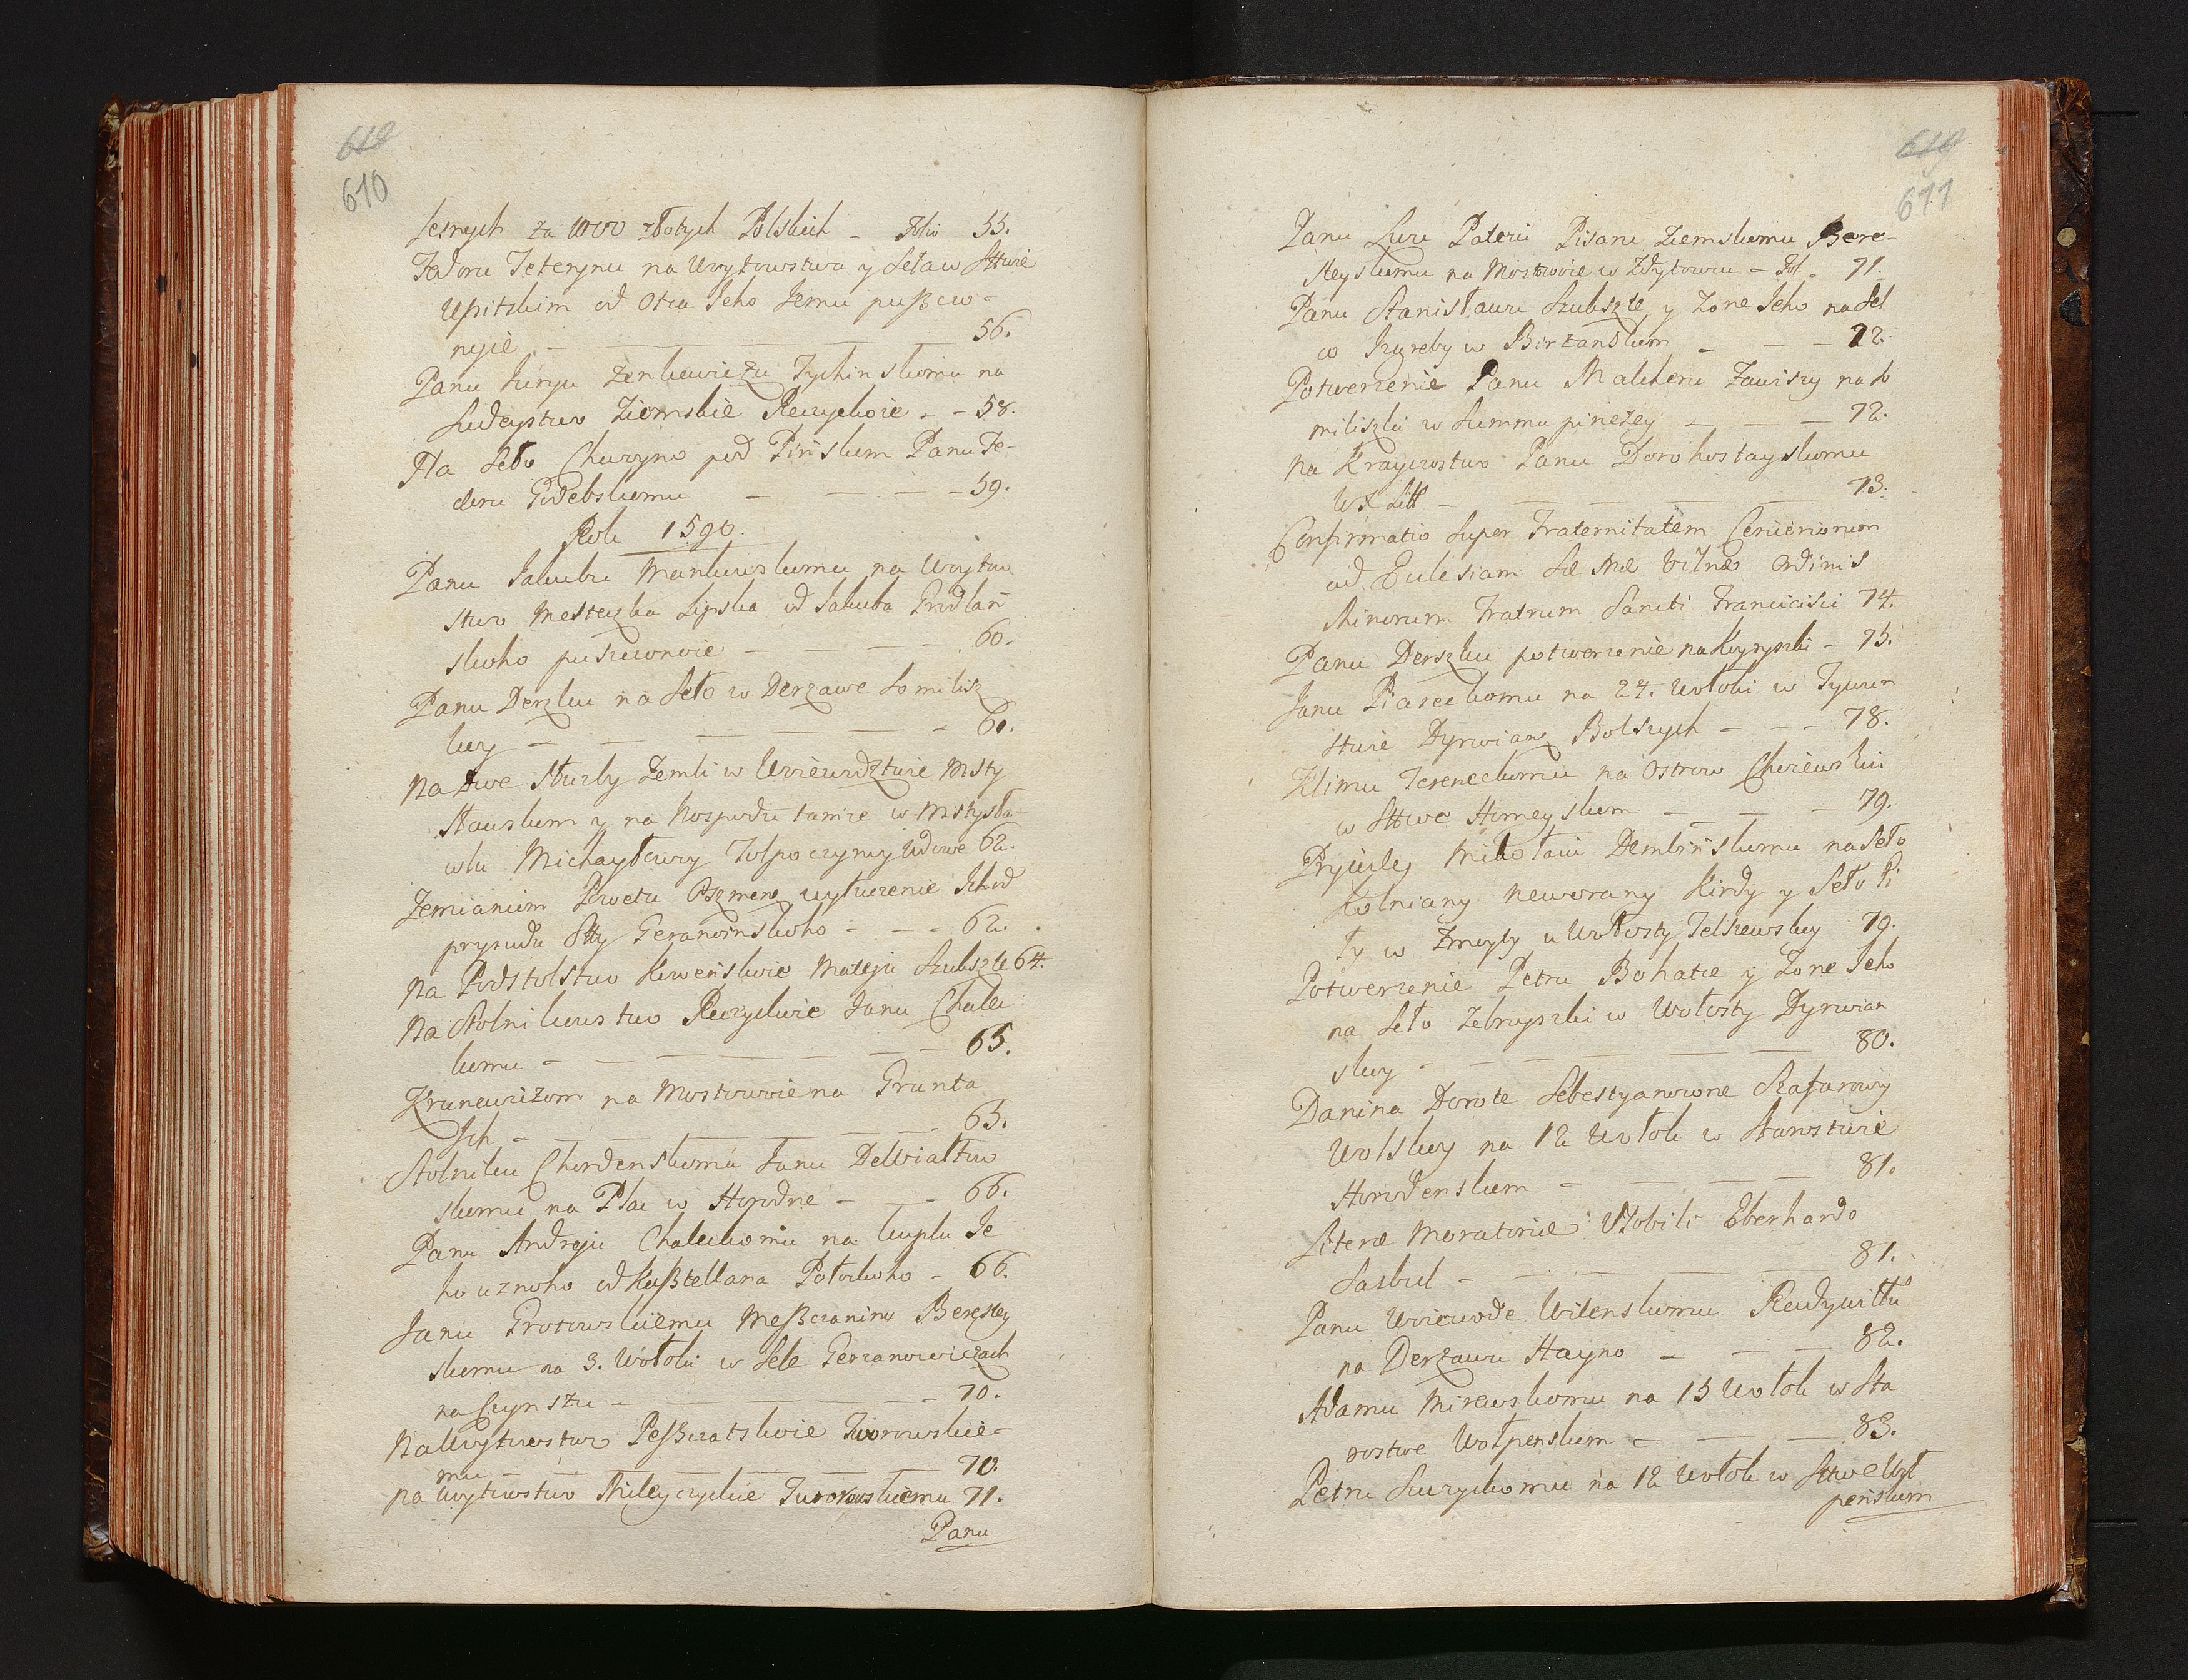 618
610
Lesnych za 1000 złotych Polskich - Folio 55.
Fedoru Teterynu na Woytowstwo y Seła w Sttwie
Upitskim od Otca Jeho Jemu pußczo-
nyie - 56.
Panu Juryu Zenkewiczu Tychinskomu na
Sudeystwo Ziemskie Reczyckoie - - 58.
Na Seło Churyno pod Pińskim Panu Fe-
deru Godebskomu - 59.
Roku 1590.
Panu Jakubu Mankowskomu na Woytow
stwo Mesteczka Lipska od Jakuba Grudzań
skoho puszczonoie - 60.
Panu Derszku na Seło w Derzawe Somilisz
koy - 60.
Na dwe Służby Zemli w Woiewodztwie Msty
sławskom y na Hospodu tamże w Mstysła-
wlu Michayłowoy Tołpoczynoy Wdowe 62.
Zemianom Powetu Oszmens wyłuczenie Ich od
prysudu Stty Geranoinskoho - 62.
Na Podstolstwo Kowenskoie Mateju Szukszte 64.
Na Stolnikowstwo Reczyckoie Janu Chalec
komu - 65.
Krunewiczom na Mostowoie na Grunta
Ich - 65.
Stolniku Chordenskomu Janu Dewiałtow
skomu na Plac w Horodne - 66.
Panu Andreju Chaleckomu na kuplu Je
ho uznoho od Kaßtellana Połockoho - 66.
Janu Grotowskiemu Meßczaninu Berestey
skomu na 3. Wołoki w Sele Gerzanowiczach
na Czynszu - 70.
Na Woytowstwo Peßczatskoie Tworowskie-
mu - 70.
Na Woytowstwo Mileyczyckie Tworowskiemu 71.
Panu
619
611
Panu Lwu Pateiu Pisaru Ziemskomu Bere-
steyskomu na Mostowoie w Zdytowcu - Fol - 71.
Panu Stanisławu Szukszte y Zone Jeho na Sel
co Jzgreby w Birzanskom - 72.
Potwerzenie Panu Malcheru Zawiszy na So
miliszki w Summu pinezey - 72.
Na Krayczostwo Panu Dorohostayskomu
WX Litt - 73.
Confirmatio Super Fraternitatem
ad Ecclesiam Vilnæ Ordinis
Minorum Fratrum Sancti Francisci 74.
Panu Derszku potwerzenie na Kuryszki - 75.
Janu Piaseckomu na 24. Wołoki w Tywun
stwie Dyrwians Bolszych - 78.
Klimu Tereneckomu na Ostrow Choiewski
w Sttwe Homeyskom - 79.
Prywiley Mikołaiu Dembińskomu na Seło
Kolniany Neworany Kirdy y Seło Pi
ły w Zmoyty u Wołosty Telszewskoy 79.
Potwerzenie Petru Bohatce y Zone Jeho
na Seło Zebryszki w Wołosty Dyrwian
skoy - 80.
Danina Dorote Sebestyanowne Szafarowoy
Wolskoy na 12 Wołok w Starostwie
Horodenskom - 81.
Literæ Moratoriæ Nobili Eberhardo
Sasbul - 81.
Panu Woiewode Wilenskomu Radywiłłu
na Derzawu Hayno - 82.
Adamu Mirewskomu na 15 Wołok w Sta
rostwe Wołpenskom - 83.
Petru Suryckomu na 12 Wołok w Sttwe Woł
penskom